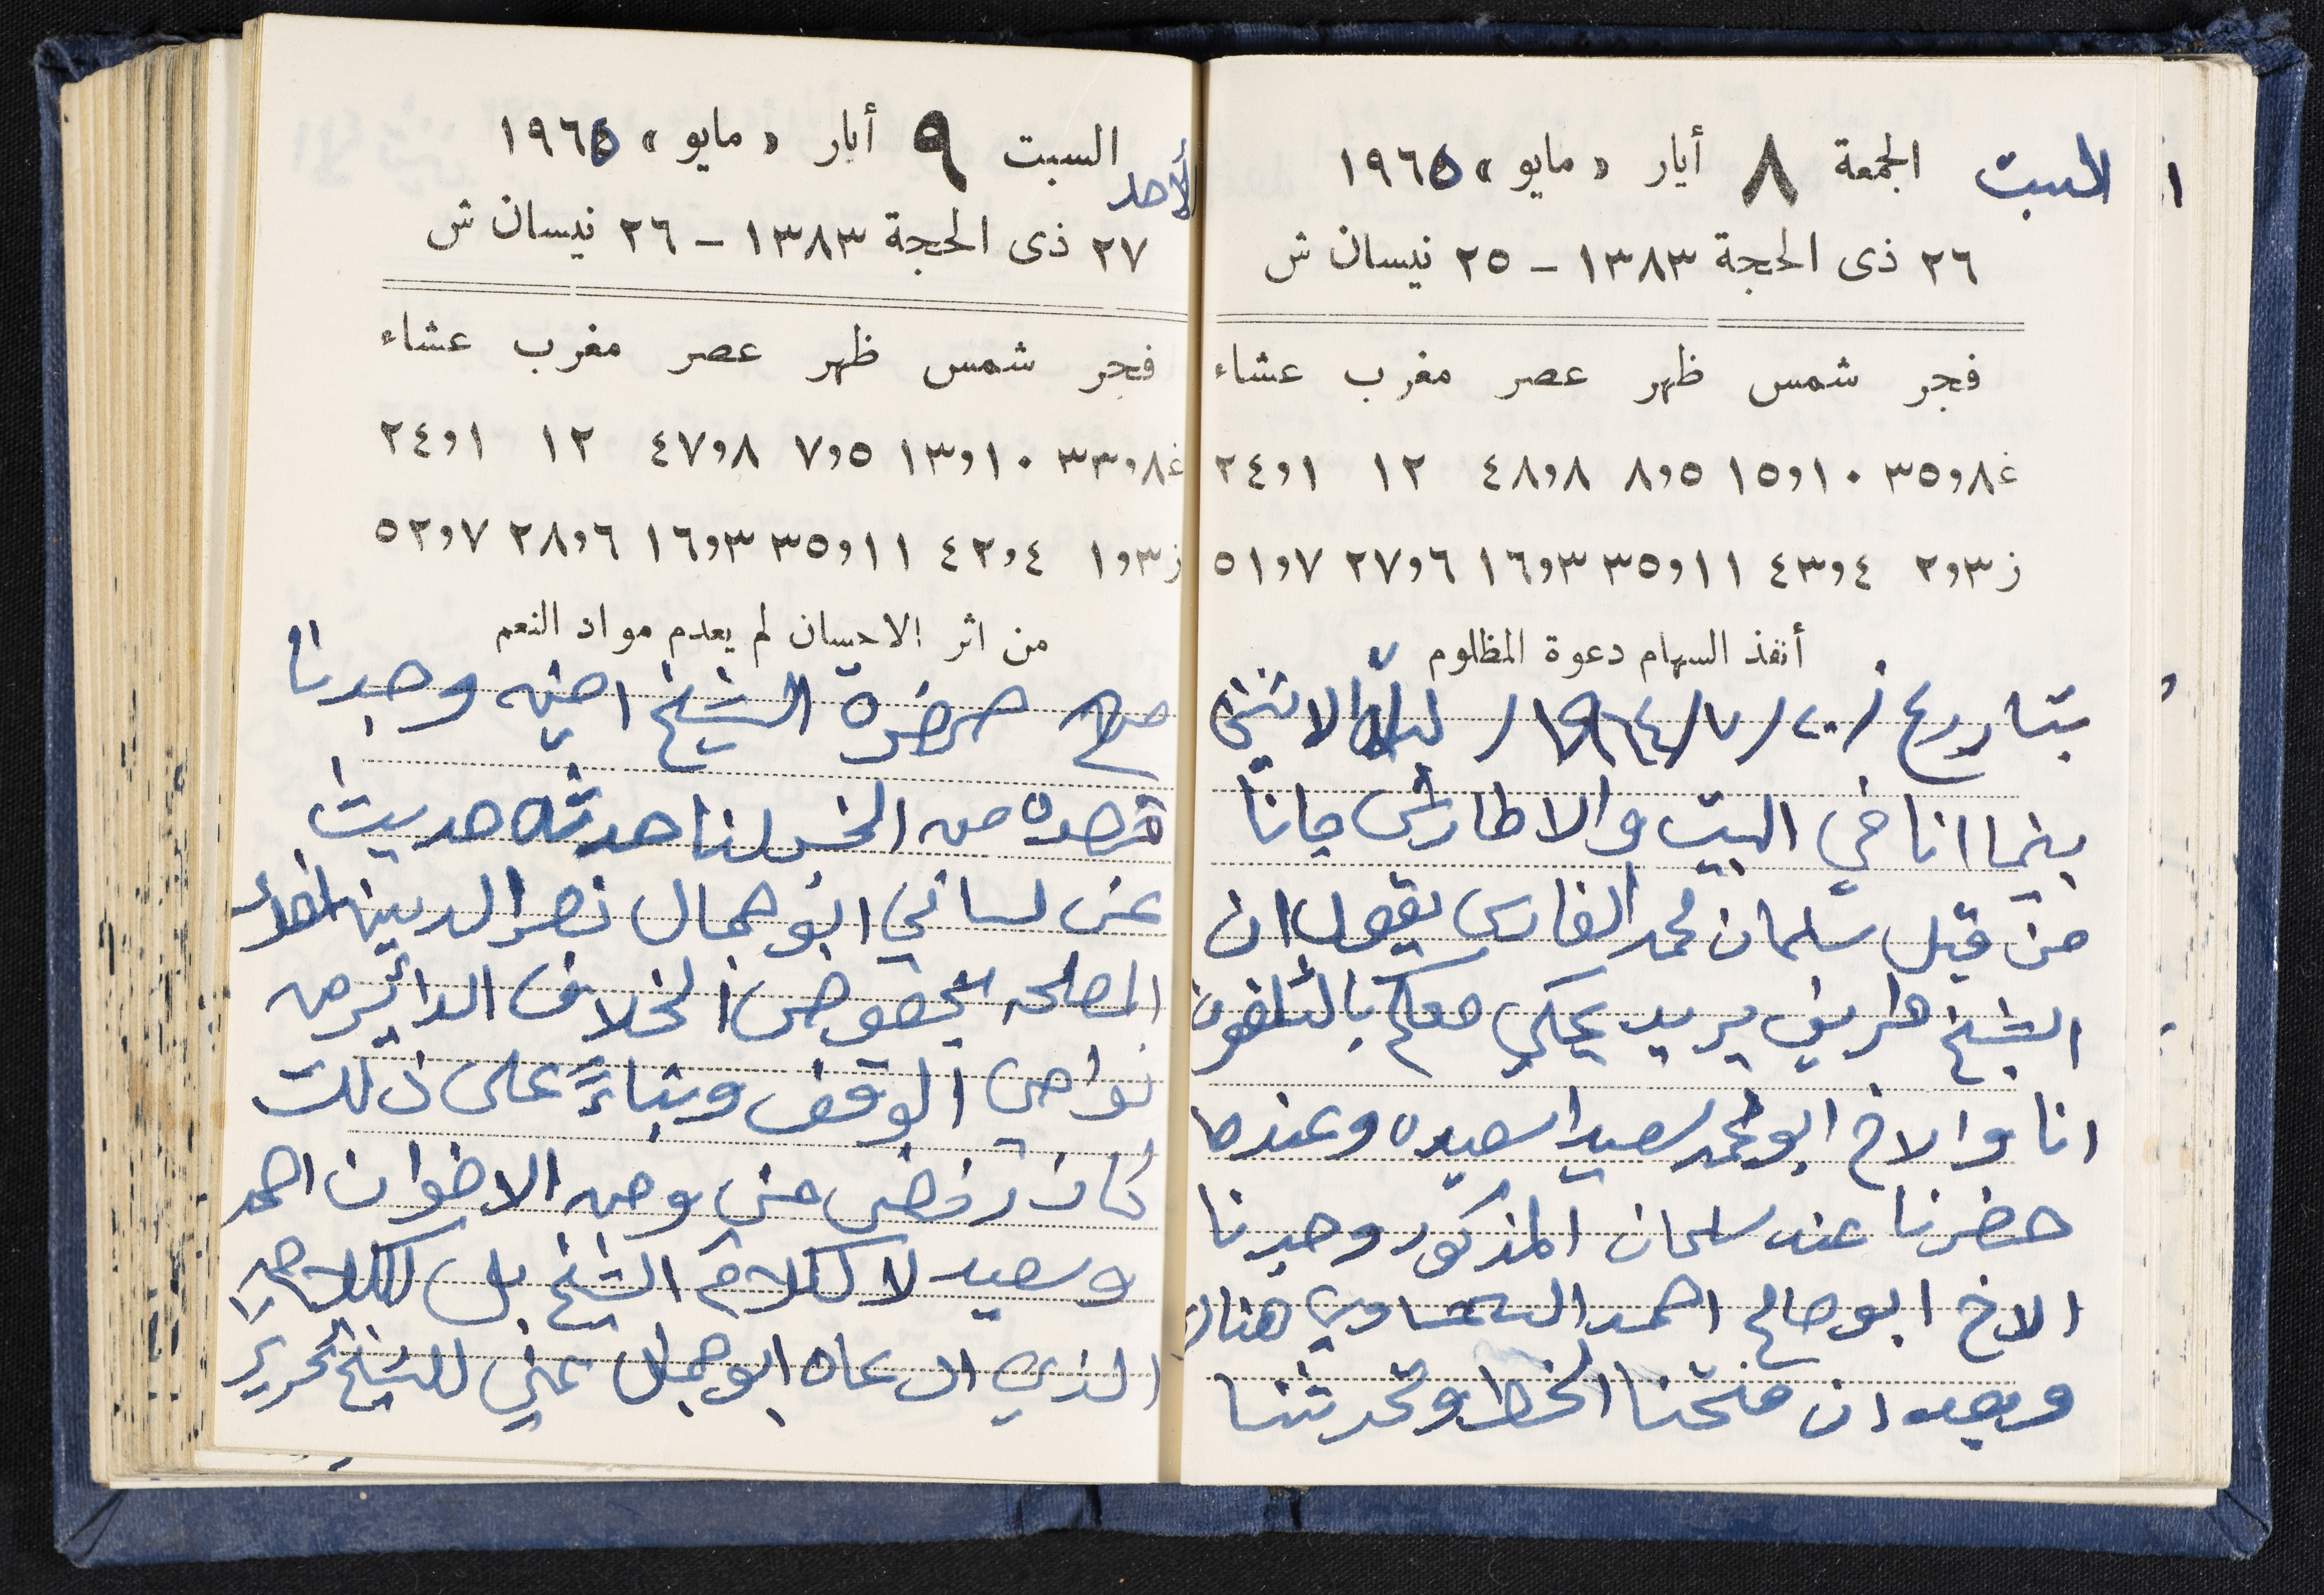 السبت الجمعة ٨ أيار « مايو » ١٩٦٥
٢٦ ذى الحجة ١٣٨٣ – ٢٥ نيسان ش
فجر شمس ظهر عصر مغرب عشاء
غ ٨و٣٥ ١٠و١٥ ٥و٨ ٨و٤٨ ١٢ ١و٢٤
ز ٣و٢ ٤و٤٣ ١١و٣٥ ٣و١٦ ٦و٢٧ ٧و٥١
أنفذ السهام دعوة المظلوم
بتاريخ ٢٠/٧/١٩٦٤/ ليلة الاثنين
بينما انا في البيت والا طارش جانا
من قبل سلمان محمد الفارس يقول ان
الشيخ طريف يريد يحكي معكم بالتلفون
انا والاخ ابو محمد سعيد اسعيده وعندما
حضرنا عند سلمان المذكور وجدنا
الاخ ابو صالح احمد هناك
وبعد ان فتحنا الخط وتحدثنا
الأحد السبت ٩ أيار « مايو » ١٩٦٥
٢٧ ذى الحجة ١٣٨٣ – ٢٦ نيسان ش
فجر شمس ظهر عصر مغرب عشاء
غ ٨و٣٣ ١٠و١٣ ٥و٧ ٨و٤٧ ١٢ ١و٢٤
ز ٣و١ ٤و٤٢ ١١و٣٥ ٣و١٦ ٦و٢٨ ٧و٥٢
من اثر الاحسان لم يعدم مواد النعم
مع حضرة الشيخ امين وجدنا
قصده من لنا حدثه حديث
عن لساني ابو جمال نصر الدين
المصلحه بخصوص الخلاف الدائر من
نواحي الوقف وبناءً على ذلك
كان رفض مني ومن الاخوان احمد
وسعيد لا لكلام الشيخ بل للكلام
الذي ادعاه ابو جمال عني للشيخ